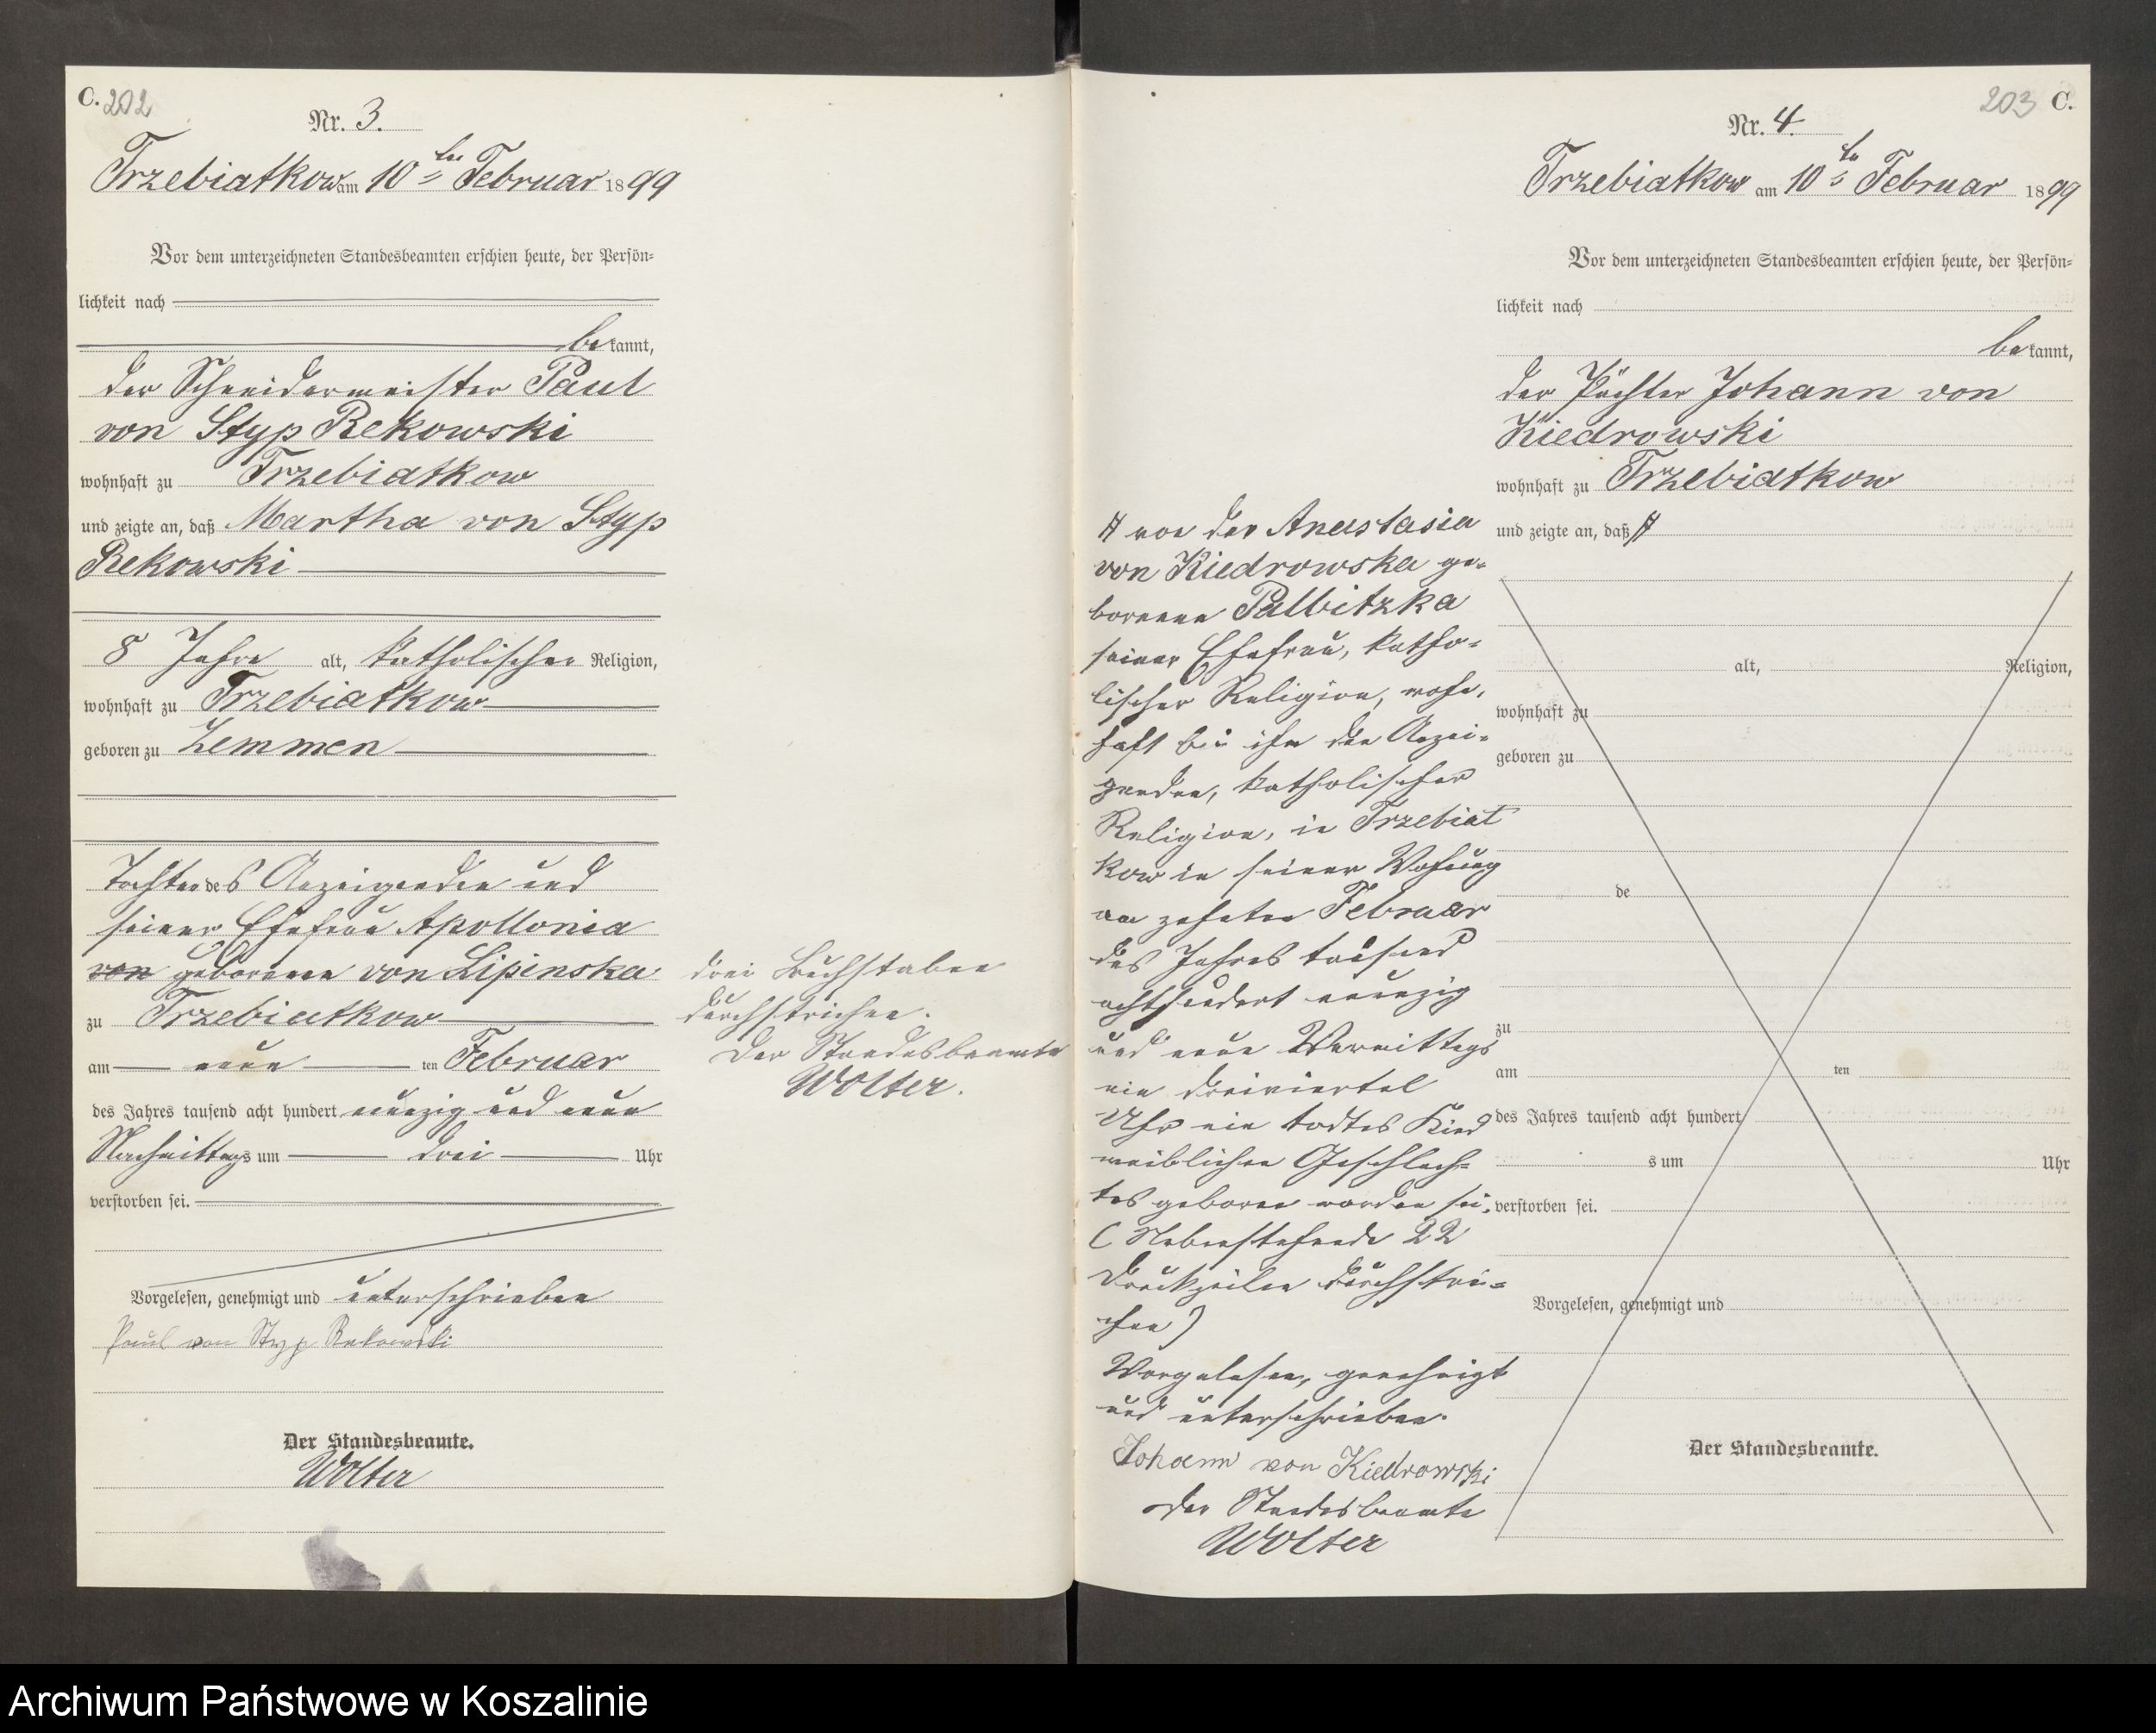 C. 202
Nr. 3.
Trzebiatkow am 10ten Februar 1899
Vor dem unterzeichneten Standesbeamten erschien heute, der Persön-
lichkeit nach
bekannt,
der Schneidermeister Paul
von Styp Rekowski
wohnhaft zu Trzebiatkow
und zeigte an, daß Martha von Styp
Rekowski
8 Jahre alt, katholischer Religion,
wohnhaft zu Trzebiatkow
geboren zu Zemmen
Tochter des Anzeigenden und
seiner Ehefrau Apollonia
von geborenen von Lipinska
zu Trzebiatkow
am neun ten Februar
des Jahres tausend acht hundert neunzig und neun
Nachmittags um drei Uhr
verstorben sei.
Vorgelesen, genehmigt und unterschrieben
Paul von Styp Rekowski
Der Standesbeamte.
Wolter
drei Buchstaben
durchstrichen.
Der Standesbeamte
Wolter.
203 C.
Nr. 4.
Trzebiatkow am 10ten Februar 1899
Vor dem unterzeichneten Standesbeamten erschien heute, der Persön-
lichkeit nach
bekannt,
der Pächter Johann von
Kiedrowski
wohnhaft zu Trzebiatkow
und zeigte an, daß #
# von der Anastasia
von Kiedrowska ge-
borenen Palbitzka
seiner Ehefrau, katho-
lischer Religion, wohn-
haft bei ihm den Anzei-
genden, katholischer
Religion, in Trzebiat
kow in seiner Wohnung
am zehnten Februar
des Jahres tausend
achthundert neunzig
und neun Vormittags
ein dreiviertel
Uhr ein todtes Kind
weiblichen Geschlech-
tes geboren worden sei.
(Nebenstehende 22
Druckzeilen durchstri-
chen)
Vorgelesen, genehmigt
und unterschrieben.
Johann von Kiedrowski
Der Standesbeamte
Wolter
alt, Religion,
wohnhaft zu
geboren zu
de
zu
am ten
des Jahres tausend acht hundert
s um Uhr
verstorben sei.
Vorgelesen, genehmigt und
Der Standesbeamte.
Archiwum Państwowe w Koszalinie